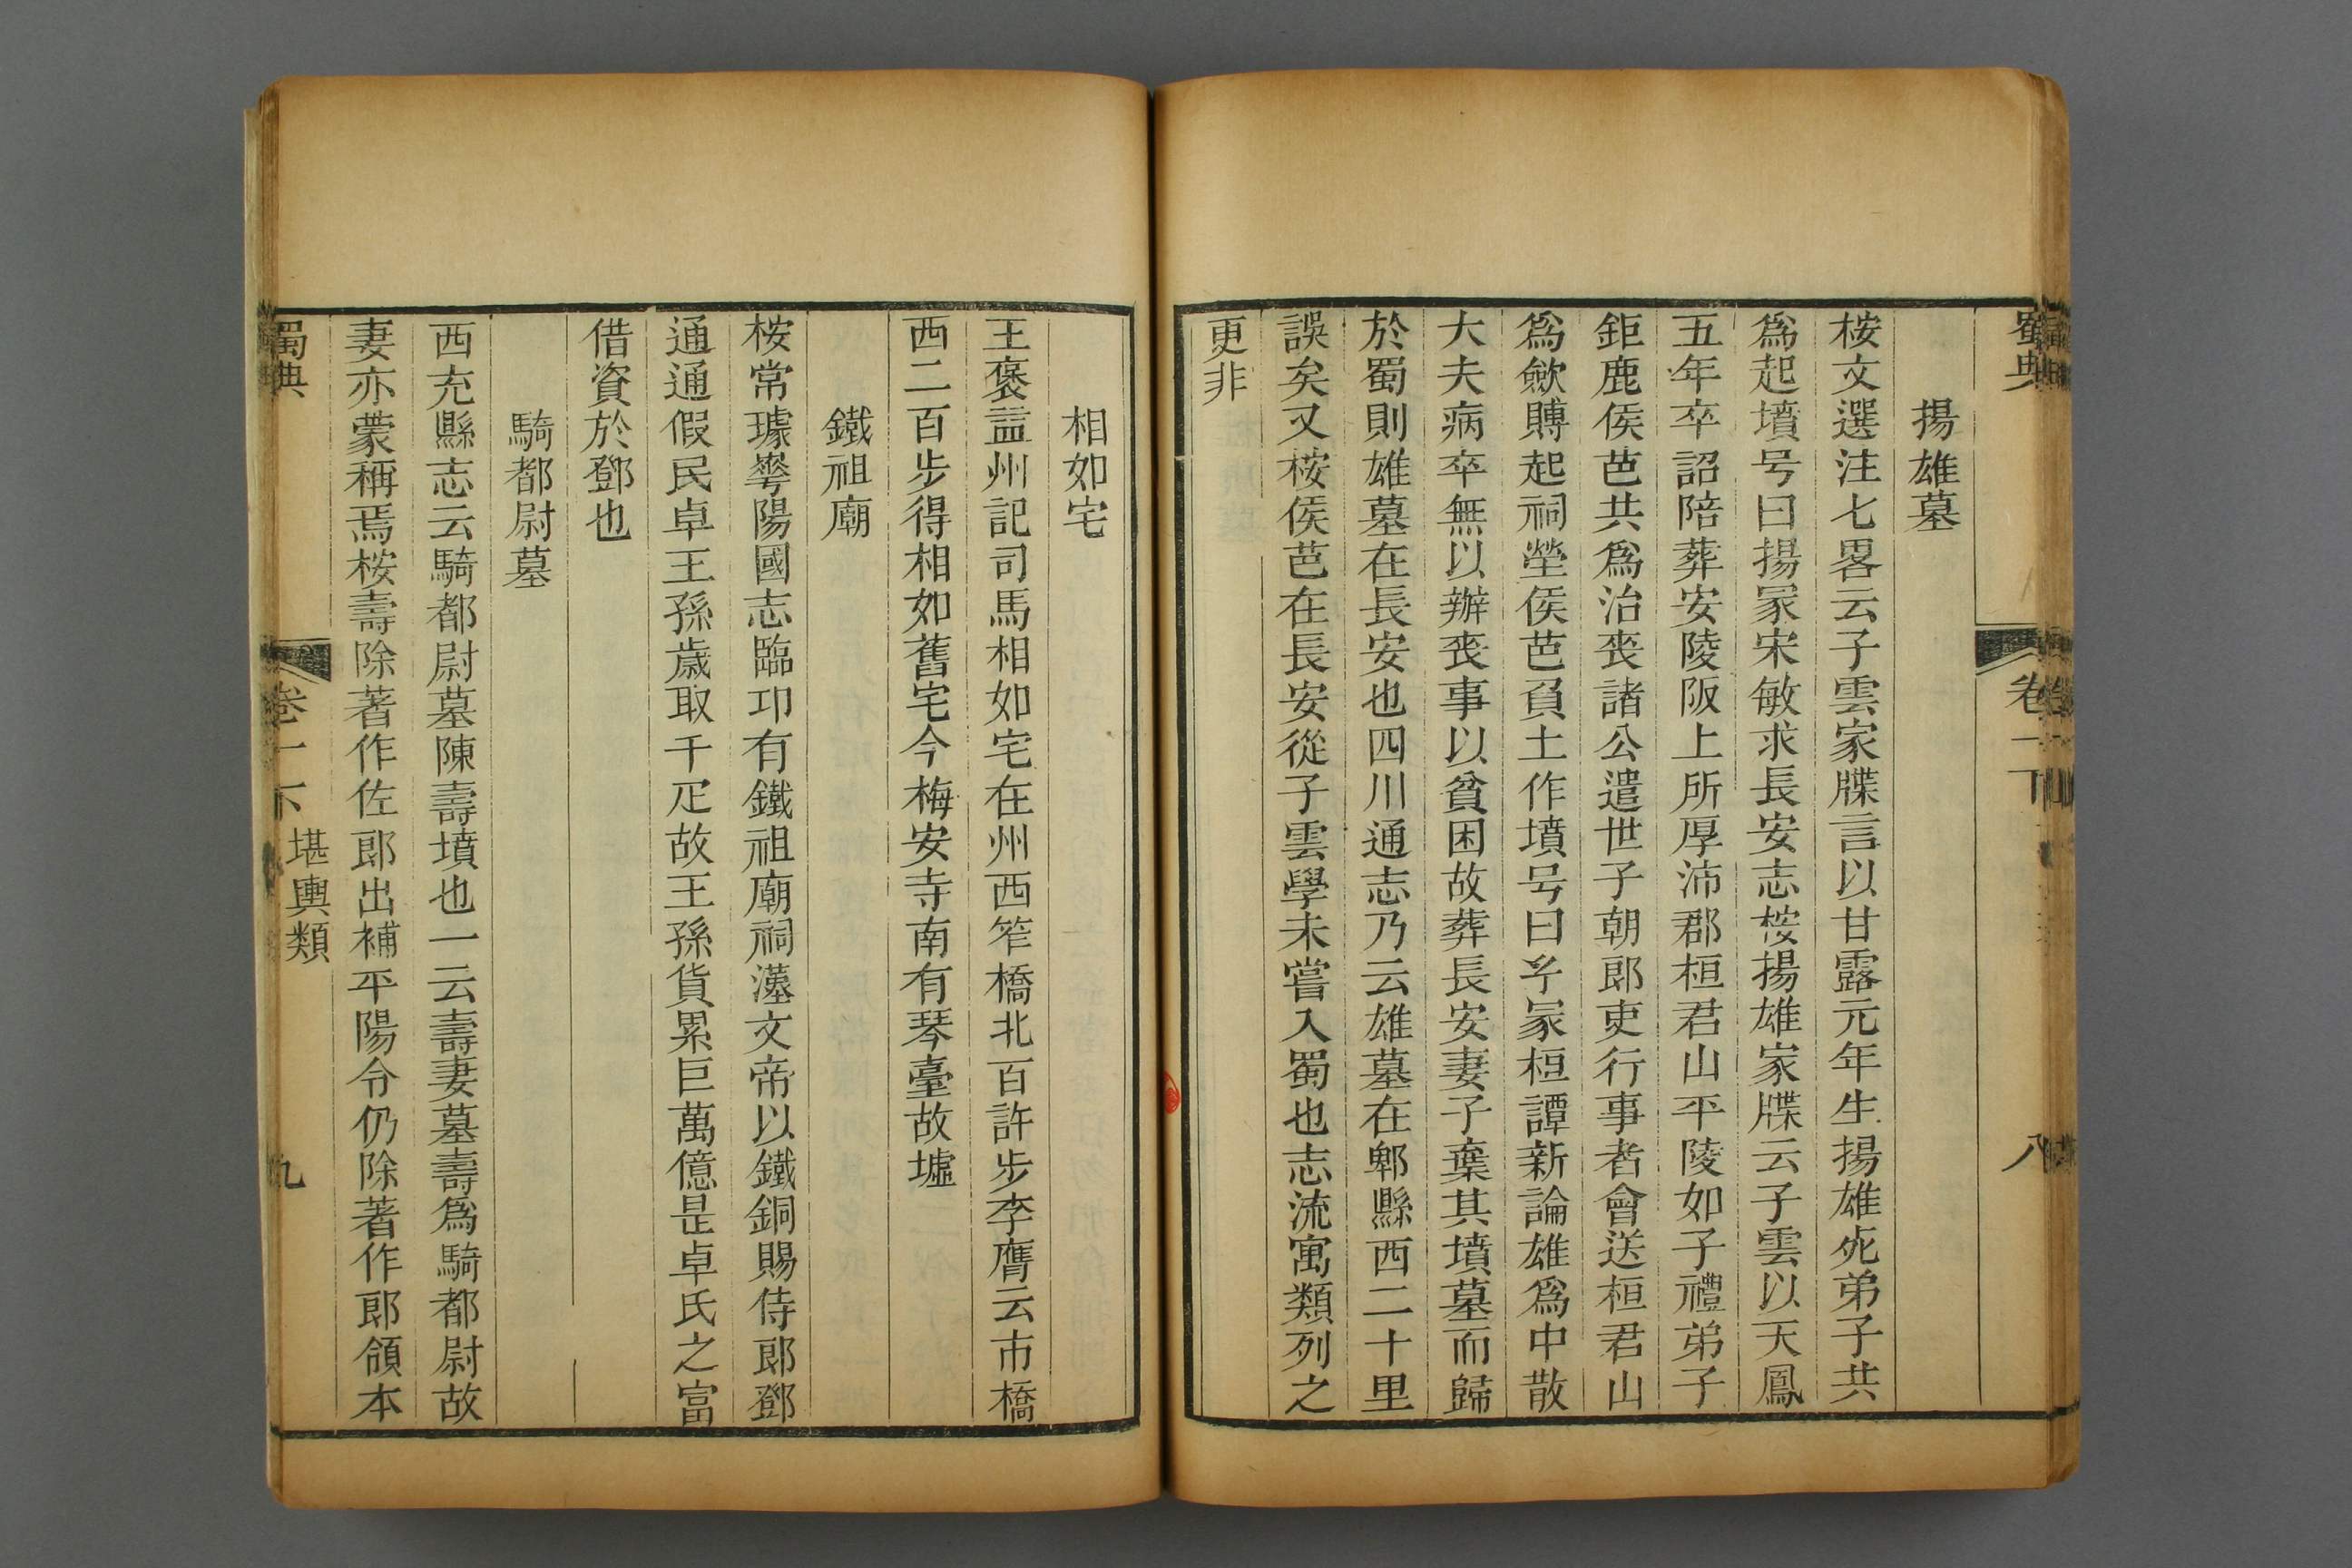 蜀典
卷一下
八
揚雄墓
桉文選注七畧云子雲家牒言以甘露元年生揚雄死弟子共
爲起墳号曰揚冡宋敏求長安志桉揚雄家牒云子雲以天鳳
五年卒詔陪葬安陵阪上所厚沛郡桓君山平陵如子禮弟子
鉅鹿侯芭共爲治喪諸公遣世子朝郎吏行事者會送桓君山
爲斂賻起祠塋侯芭負土作墳号曰𤣥冡桓譚新論雄爲中散
大夫病卒無以辦喪事以貧困故葬長安妻子棄其墳墓而歸
於蜀則雄墓在長安也四川通志乃云雄墓在郫縣西二十里
誤矣又桉侯芭在長安從子雲學未嘗入蜀也志流寓類列之
更非
相如宅
王褒益州記司馬相如宅在州西笮橋北百許步李膺云市橋
西二百步得相如舊宅今梅安寺南有琴臺故墟
鐵祖廟
桉常璩崋陽國志臨邛有鐵祖廟祠漢文帝以鐵銅賜侍郎鄧
通通假民卓王孫歲取千疋故王孫貨累巨萬億是卓氏之富
借資於鄧也
騎都尉墓
西充縣志云騎都尉墓陳壽墳也一云壽妻墓壽爲騎都尉故
妻亦蒙稱焉桉壽除著作佐郎出補平陽令仍除著作郎領本
蜀典
卷一下
堪輿類
九